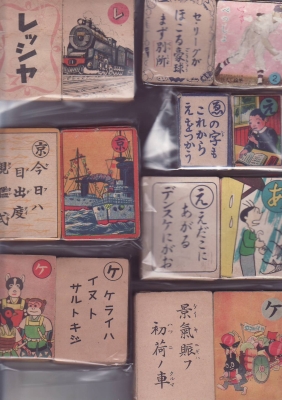 レッシャ
レ
セリーグが
ほこる豪球
まず別所
ゑの字も
これから
えをつかう
え
京
今日ハ
目出度
観艦式
京
え
えだこに
あがる
デンスケにがお
あ
ケ
ケ
ケライハ
イヌト
サルトキジ
景氣賑フ
初荷ノ車
ケ